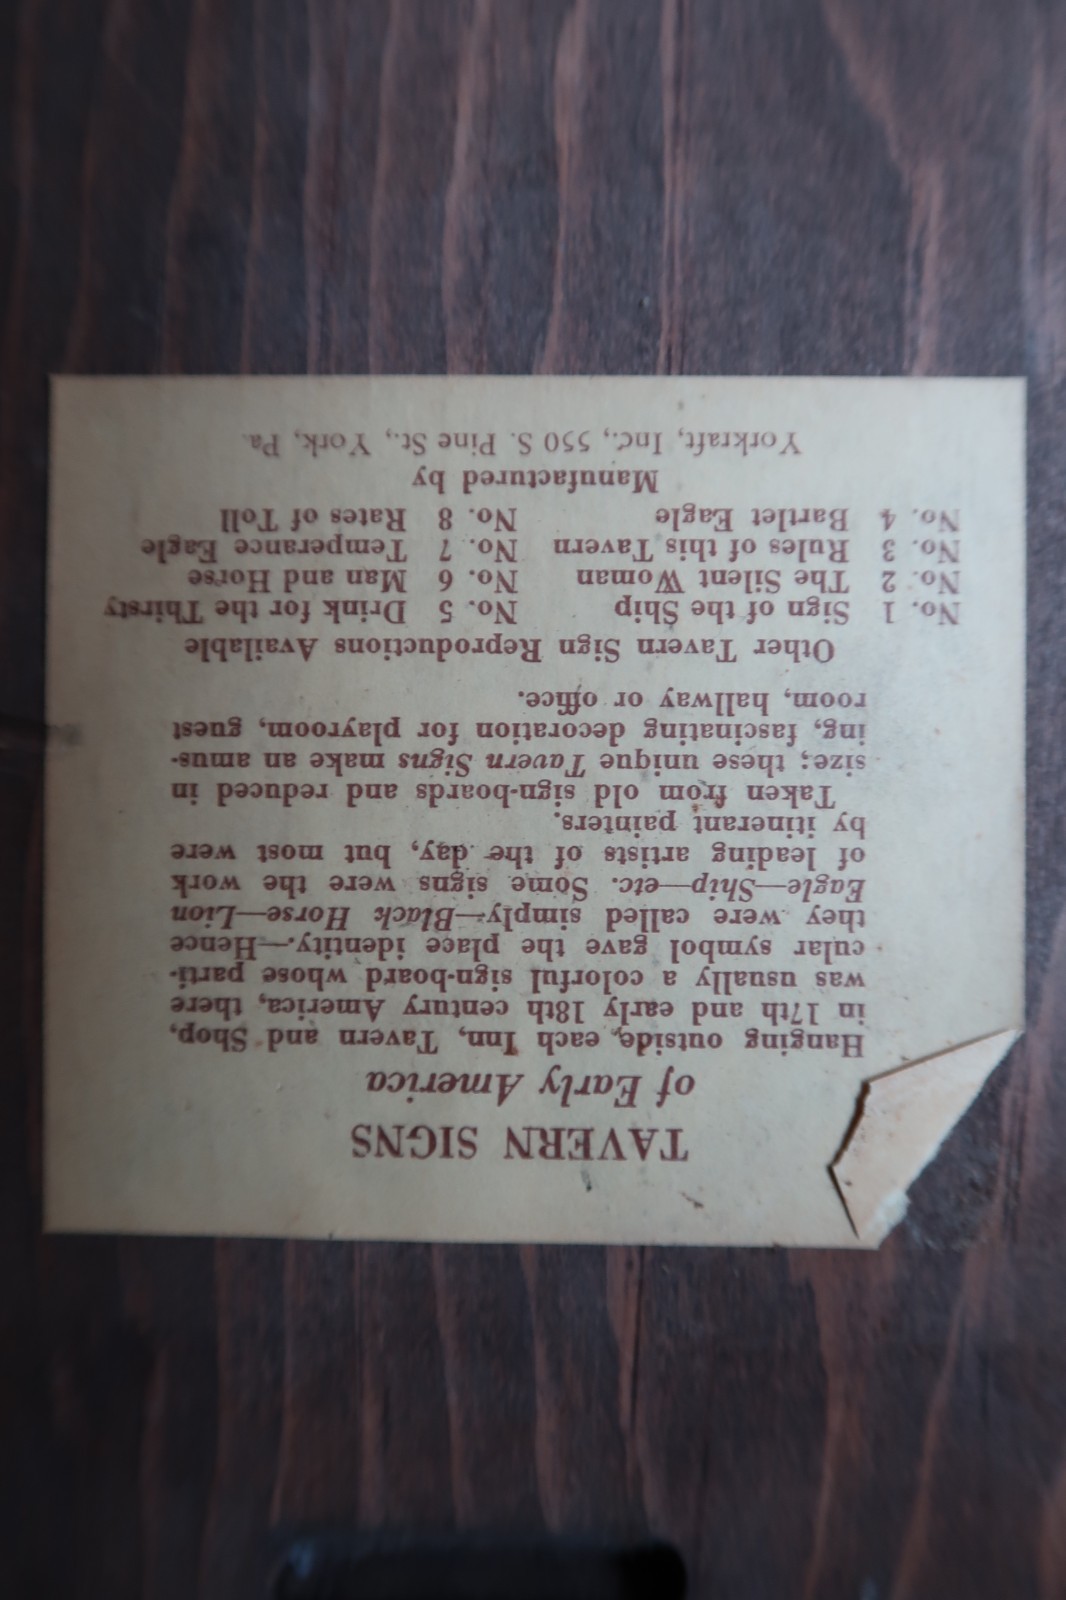 TAVERN SIGNS
of Early America
Hanging outside, each Inn, Tavern and Shop,
in 17th and early 18th century America, there
was usually a colorful sign-board whose parti-
cular symbol gave the place identity.—Hence
they were called simply—Black Horse—Lion
Eagle—Ship—etc. Some signs were the work
of leading artists of the day, but most were
by itinerant painters.
Taken from old sign-boards and reduced in
size; these unique Tavern Signs make an amus-
ing, fascinating decoration for playroom, guest
room, hallway or office.
Other Tavern Sign Reproductions Available
No. 1 Sign of the Ship No. 5 Drink for the Thirsty
No. 2 The Silent Woman No. 6 Man and Horse
No. 3 Rules of this Tavern No. 7 Temperance Eagle
No. 4 Bartlet Eagle No. 8 Rates of Toll
Manufactured by
Yorkraft, Inc., 550 S. Pine St., York, Pa.